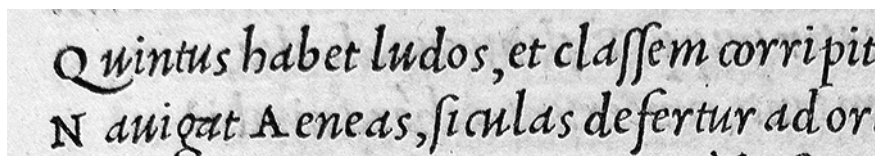 Quintus habet ludos, et claſſem corripit
Nauigat Aeneas, ſiculas defertur ad